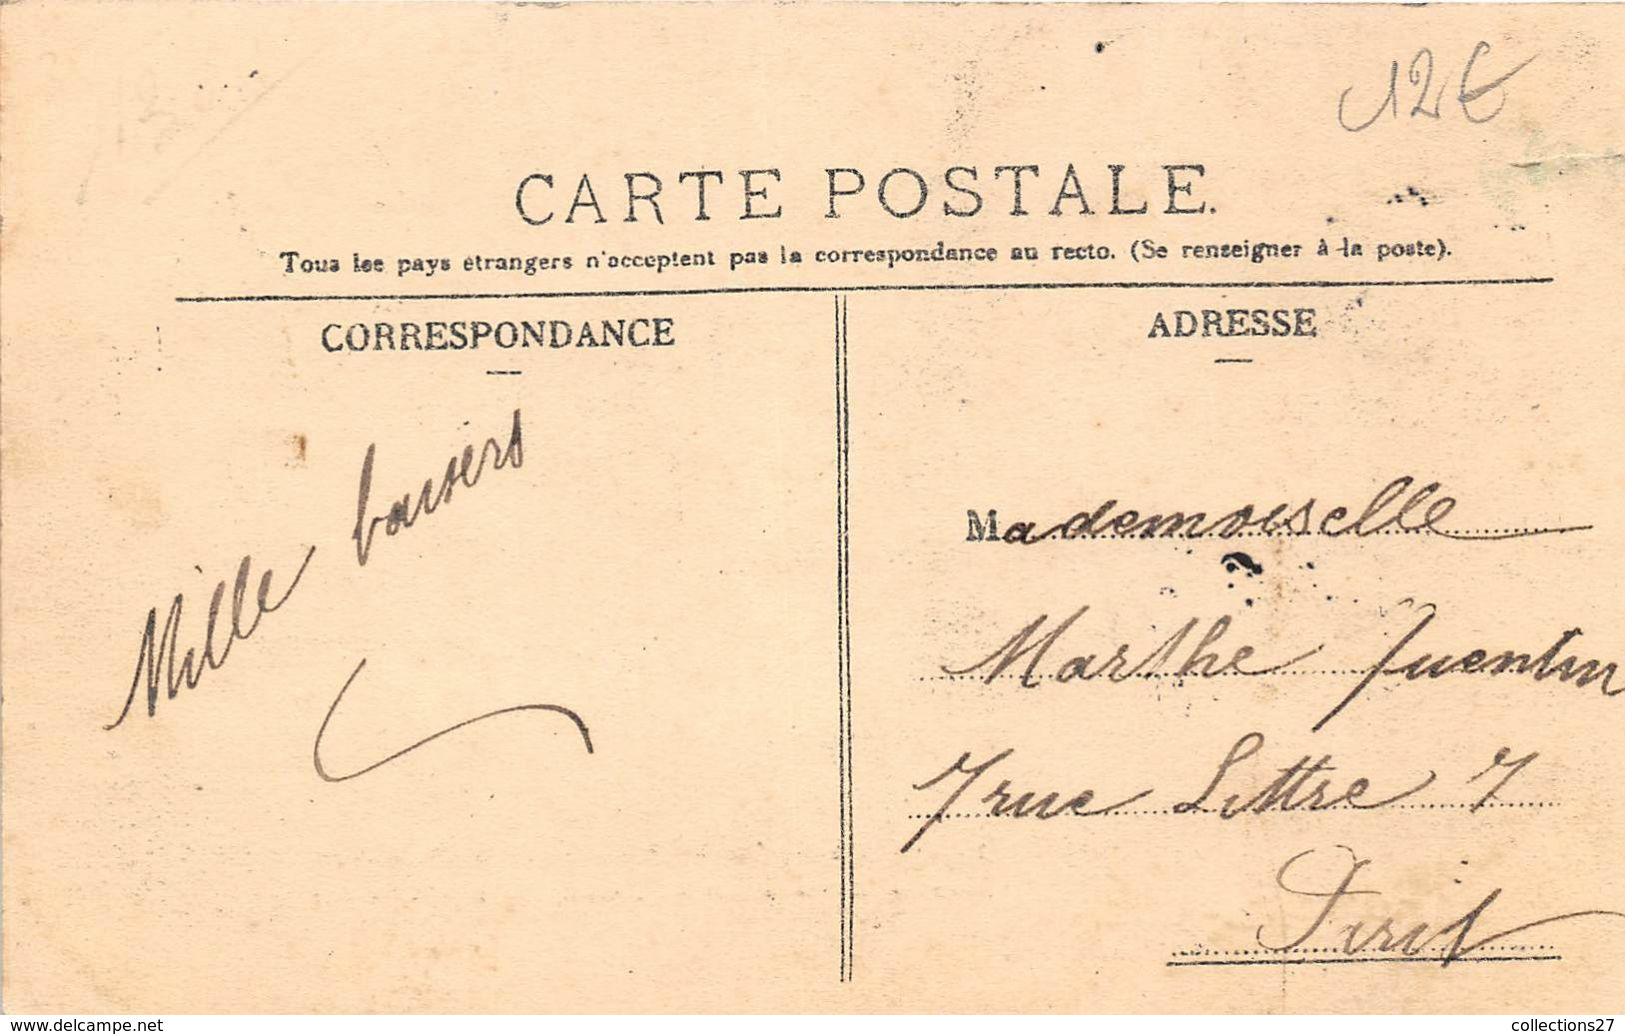 12€
CARTE POSTALE.
Tous les pays étrangers n'acceptent pas la correspondance au recto. (Se renseigner à la poste).
CORRESPONDANCE
Mille baisers
ADRESSE
Mademoiselle
Marthe Quentin
7 rue Littre 7
Paris
www.delcampe.net
collections27